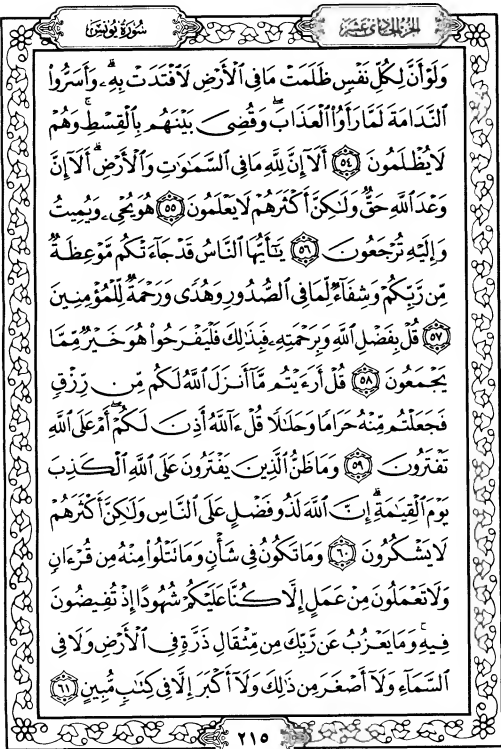 سُورَةُ يُونُسَ الجُزْءُ الحَادِى عَشَرَ
وَلَوْ أَنَّ لِكُلِّ نَفْسٍ ظَلَمَتْ مَا فِي ٱلْأَرْضِ لَٱفْتَدَتْ بِهِۦۗ وَأَسَرُّوا۟
ٱلنَّدَامَةَ لَمَّا رَأَوُا۟ ٱلْعَذَابَۖ وَقُضِىَ بَيْنَهُم بِٱلْقِسْطِۚ وَهُمْ
لَا يُظْلَمُونَ ٥٤ أَلَآ إِنَّ لِلَّهِ مَا فِي ٱلسَّمَٰوَٰتِ وَٱلْأَرْضِۗ أَلَآ إِنَّ
وَعْدَ ٱللَّهِ حَقٌّ وَلَٰكِنَّ أَكْثَرَهُمْ لَا يَعْلَمُونَ ٥٥ هُوَ يُحْىِۦ وَيُمِيتُ
وَإِلَيْهِ تُرْجَعُونَ ٥٦ يَٰٓأَيُّهَا ٱلنَّاسُ قَدْ جَآءَتْكُم مَّوْعِظَةٌ
مِّن رَّبِّكُمْ وَشِفَآءٌ لِّمَا فِي ٱلصُّدُورِ وَهُدًى وَرَحْمَةٌ لِّلْمُؤْمِنِينَ
٥٧ قُلْ بِفَضْلِ ٱللَّهِ وَبِرَحْمَتِهِۦ فَبِذَٰلِكَ فَلْيَفْرَحُوا۟ هُوَ خَيْرٌ مِّمَّا
يَجْمَعُونَ ٥٨ قُلْ أَرَءَيْتُم مَّآ أَنزَلَ ٱللَّهُ لَكُم مِّن رِّزْقٍ
فَجَعَلْتُم مِّنْهُ حَرَامًا وَحَلَٰلًا قُلْ ءَآللَّهُ أَذِنَ لَكُمْۖ أَمْ عَلَى ٱللَّهِ
تَفْتَرُونَ ٥٩ وَمَا ظَنُّ ٱلَّذِينَ يَفْتَرُونَ عَلَى ٱللَّهِ ٱلْكَذِبَ
يَوْمَ ٱلْقِيَٰمَةِۗ إِنَّ ٱللَّهَ لَذُو فَضْلٍ عَلَى ٱلنَّاسِ وَلَٰكِنَّ أَكْثَرَهُمْ
لَا يَشْكُرُونَ ٦٠ وَمَا تَكُونُ فِي شَأْنٍ وَمَا تَتْلُوا۟ مِنْهُ مِن قُرْءَانٍ
وَلَا تَعْمَلُونَ مِنْ عَمَلٍ إِلَّا كُنَّا عَلَيْكُمْ شُهُودًا إِذْ تُفِيضُونَ
فِيهِۚ وَمَا يَعْزُبُ عَن رَّبِّكَ مِن مِّثْقَالِ ذَرَّةٍ فِي ٱلْأَرْضِ وَلَا فِي
ٱلسَّمَآءِ وَلَآ أَصْغَرَ مِن ذَٰلِكَ وَلَآ أَكْبَرَ إِلَّا فِي كِتَٰبٍ مُّبِينٍ ٦١
٢١٥